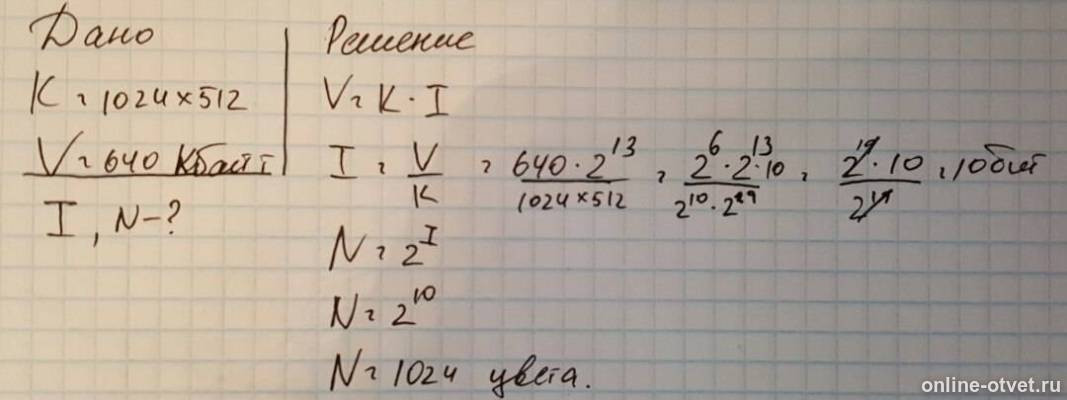 Дано
K = 1024 × 512
V = 640 Кбайт
I, N - ?
Решение
V = K · I
I = V/K = 640 · 2^13 / 1024 × 512 = 2^6 · 2^13 · 10 / 2^10 · 2^9 = 2^19 · 10 / 2^19 = 10 бит
N = 2^I
N = 2^10
N = 1024 цвета.
online-otvet.ru